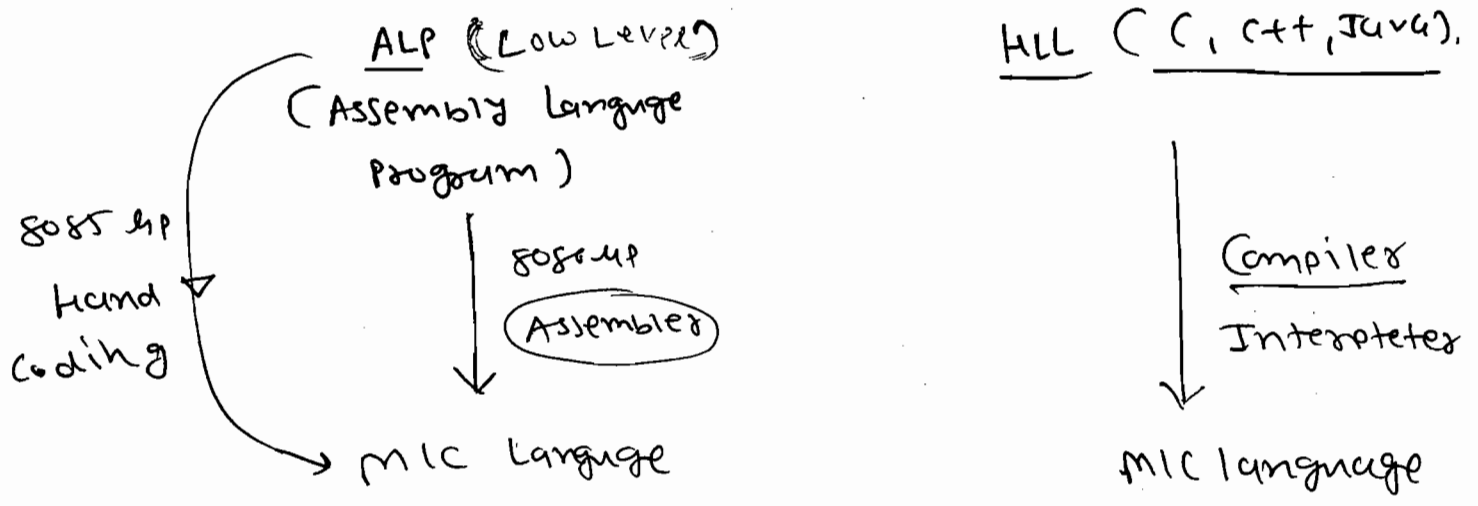 ALP (Low Level)
(Assembly Languge
Program)
8085 μP
Hand
Coding
8086 μP
Assembler
M/C Languge
HLL (C, C++, Java).
Compiler
Interpteter
M/C language